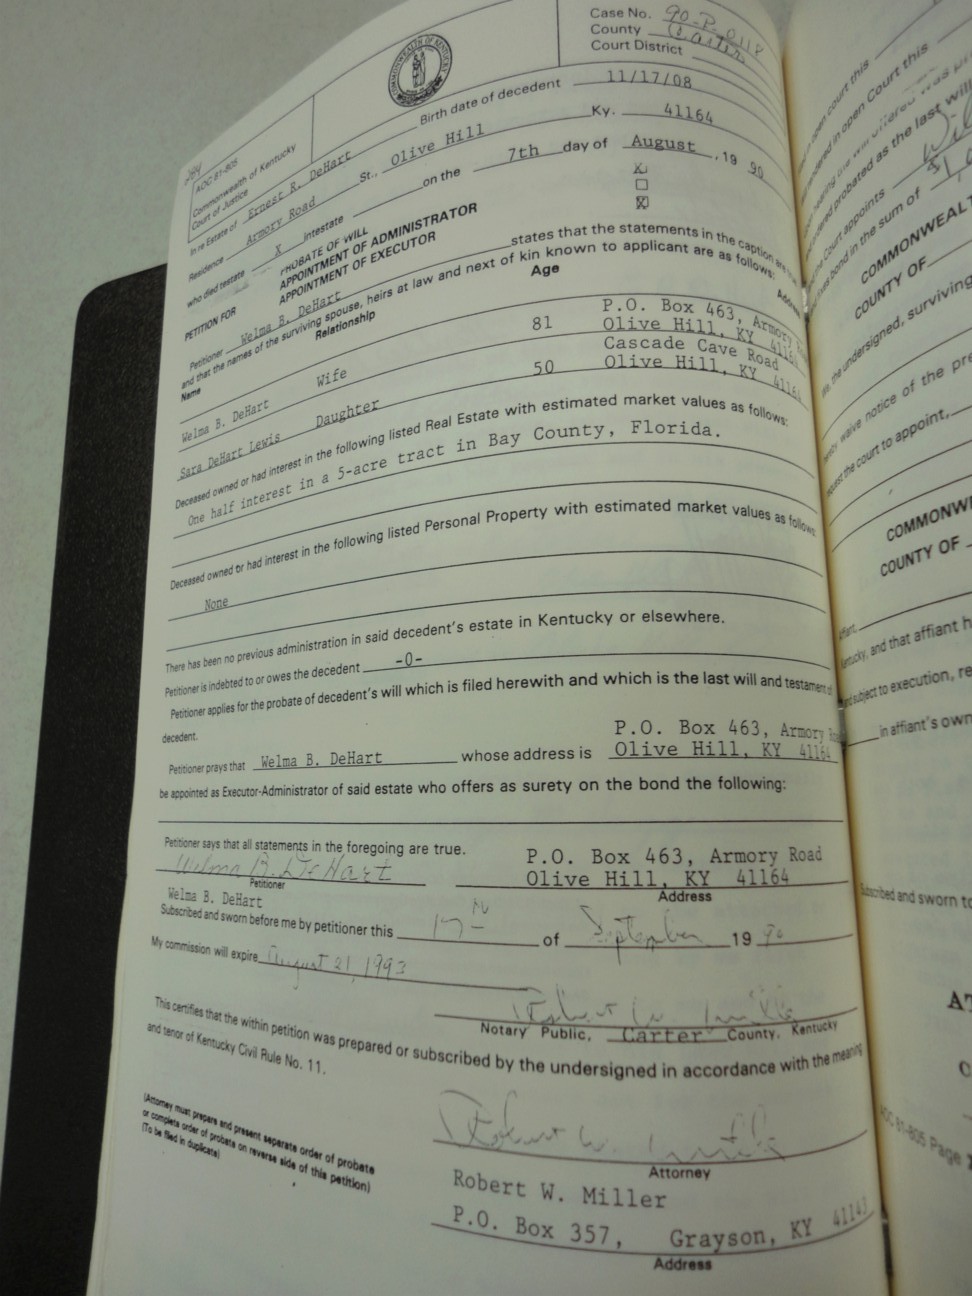 Case No. 90-P-0118
County Carter
Court District
AOC 81-805
Commonwealth of Kentucky
Court of Justice
COMMONWEALTH OF KENTUCKY
Birth date of decedent 11/17/08
In re Estate of Ernest R. DeHart
Residence Armory Road St., Olive Hill Ky. 41164
who died testate X intestate on the 7th day of August, 19 90
PETITION FOR PROBATE OF WILL X
APPOINTMENT OF ADMINISTRATOR
APPOINTMENT OF EXECUTOR X
Petitioner Welma B. DeHart states that the statements in the caption are
and that the names of the surviving spouse, heirs at law and next of kin known to applicant are as follows:
Name Relationship Age Address
Welma B. DeHart Wife 81 P.O. Box 463, Armory
Olive Hill, KY 41164
Sara DeHart Lewis Daughter 50 Cascade Cave Road
Olive Hill, KY 41164
Deceased owned or had interest in the following listed Real Estate with estimated market values as follows:
One half interest in a 5-acre tract in Bay County, Florida.
Deceased owned or had interest in the following listed Personal Property with estimated market values as follows:
None
There has been no previous administration in said decedent's estate in Kentucky or elsewhere.
Petitioner is indebted to or owes the decedent -0-
Petitioner applies for the probate of decedent's will which is filed herewith and which is the last will and testament of
decedent.
P.O. Box 463, Armory
Petitioner prays that Welma B. DeHart whose address is Olive Hill, KY 41164
be appointed as Executor-Administrator of said estate who offers as surety on the bond the following:
Petitioner says that all statements in the foregoing are true.
Welma B. DeHart P.O. Box 463, Armory Road
Petitioner Olive Hill, KY 41164
Welma B. DeHart Address
Subscribed and sworn before me by petitioner this 17th of September 19 90
My commission will expire August 21, 1993
Robert W. Miller
Notary Public, Carter County, Kentucky
This certifies that the within petition was prepared or subscribed by the undersigned in accordance with the meaning
and tenor of Kentucky Civil Rule No. 11.
Robert W. Miller
(Attorney must prepare and present separate order of probate
or complete order of probate on reverse side of this petition)
(To be filed in duplicate)
Attorney
Robert W. Miller
P.O. Box 357, Grayson, KY 41143
Address
in open court this
in open Court this
probated as the last will
Court appoints
bond in the sum of
COMMONWEALT
COUNTY OF
the undersigned, surviving
waive notice of the pre
the court to appoint,
COMMONW
COUNTY OF
and that affiant h
subject to execution, re
in affiant's own
Subscribed and sworn to
AT
AOC 81-805 Page